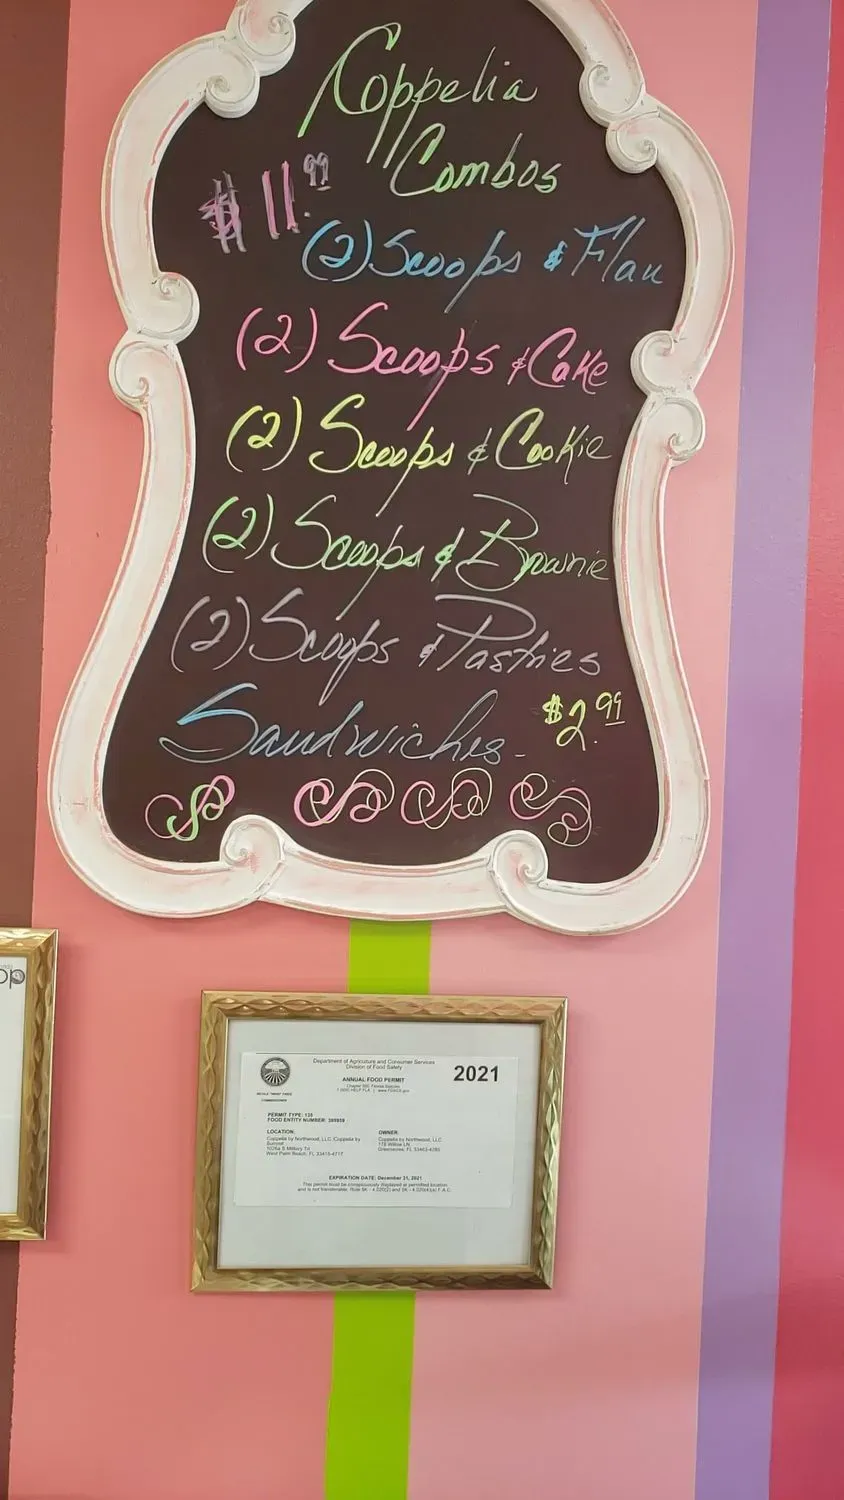 Coppelia
Combos
$11.99
(2) Scoops & Flan
(2) Scoops & Cake
(2) Scoops & Cookie
(2) Scoops & Brownie
(2) Scoops & Pastries
Sandwiches - $2.99
Department of Agriculture and Consumer Services
Division of Food Safety
2021
ANNUAL FOOD PERMIT
Chapter 500, Florida Statutes
COMMISSIONER
PERMIT TYPE:
FOOD ENTITY NUMBER:
LOCATION:
Coppelia by Northwood, LLC /Coppelia by
Summit
S Military Trl
West Palm Beach, FL 33415-4717
OWNER:
Coppelia by Northwood, LLC
178 Willow LN
Greenacres, FL
EXPIRATION DATE: December 31, 2021
This permit must be conspicuously displayed at permitted location
and is not transferable. Rule 5K - 4.020(2) and 5K - 4.020(4)(a) F.A.C.